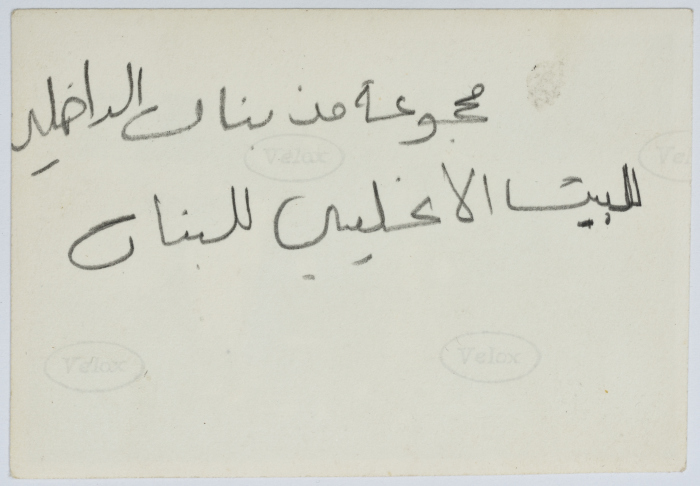 مجموعة من بنات الداخلي
للبيت الانجليزي للبنات
Velox
Velox
Velox